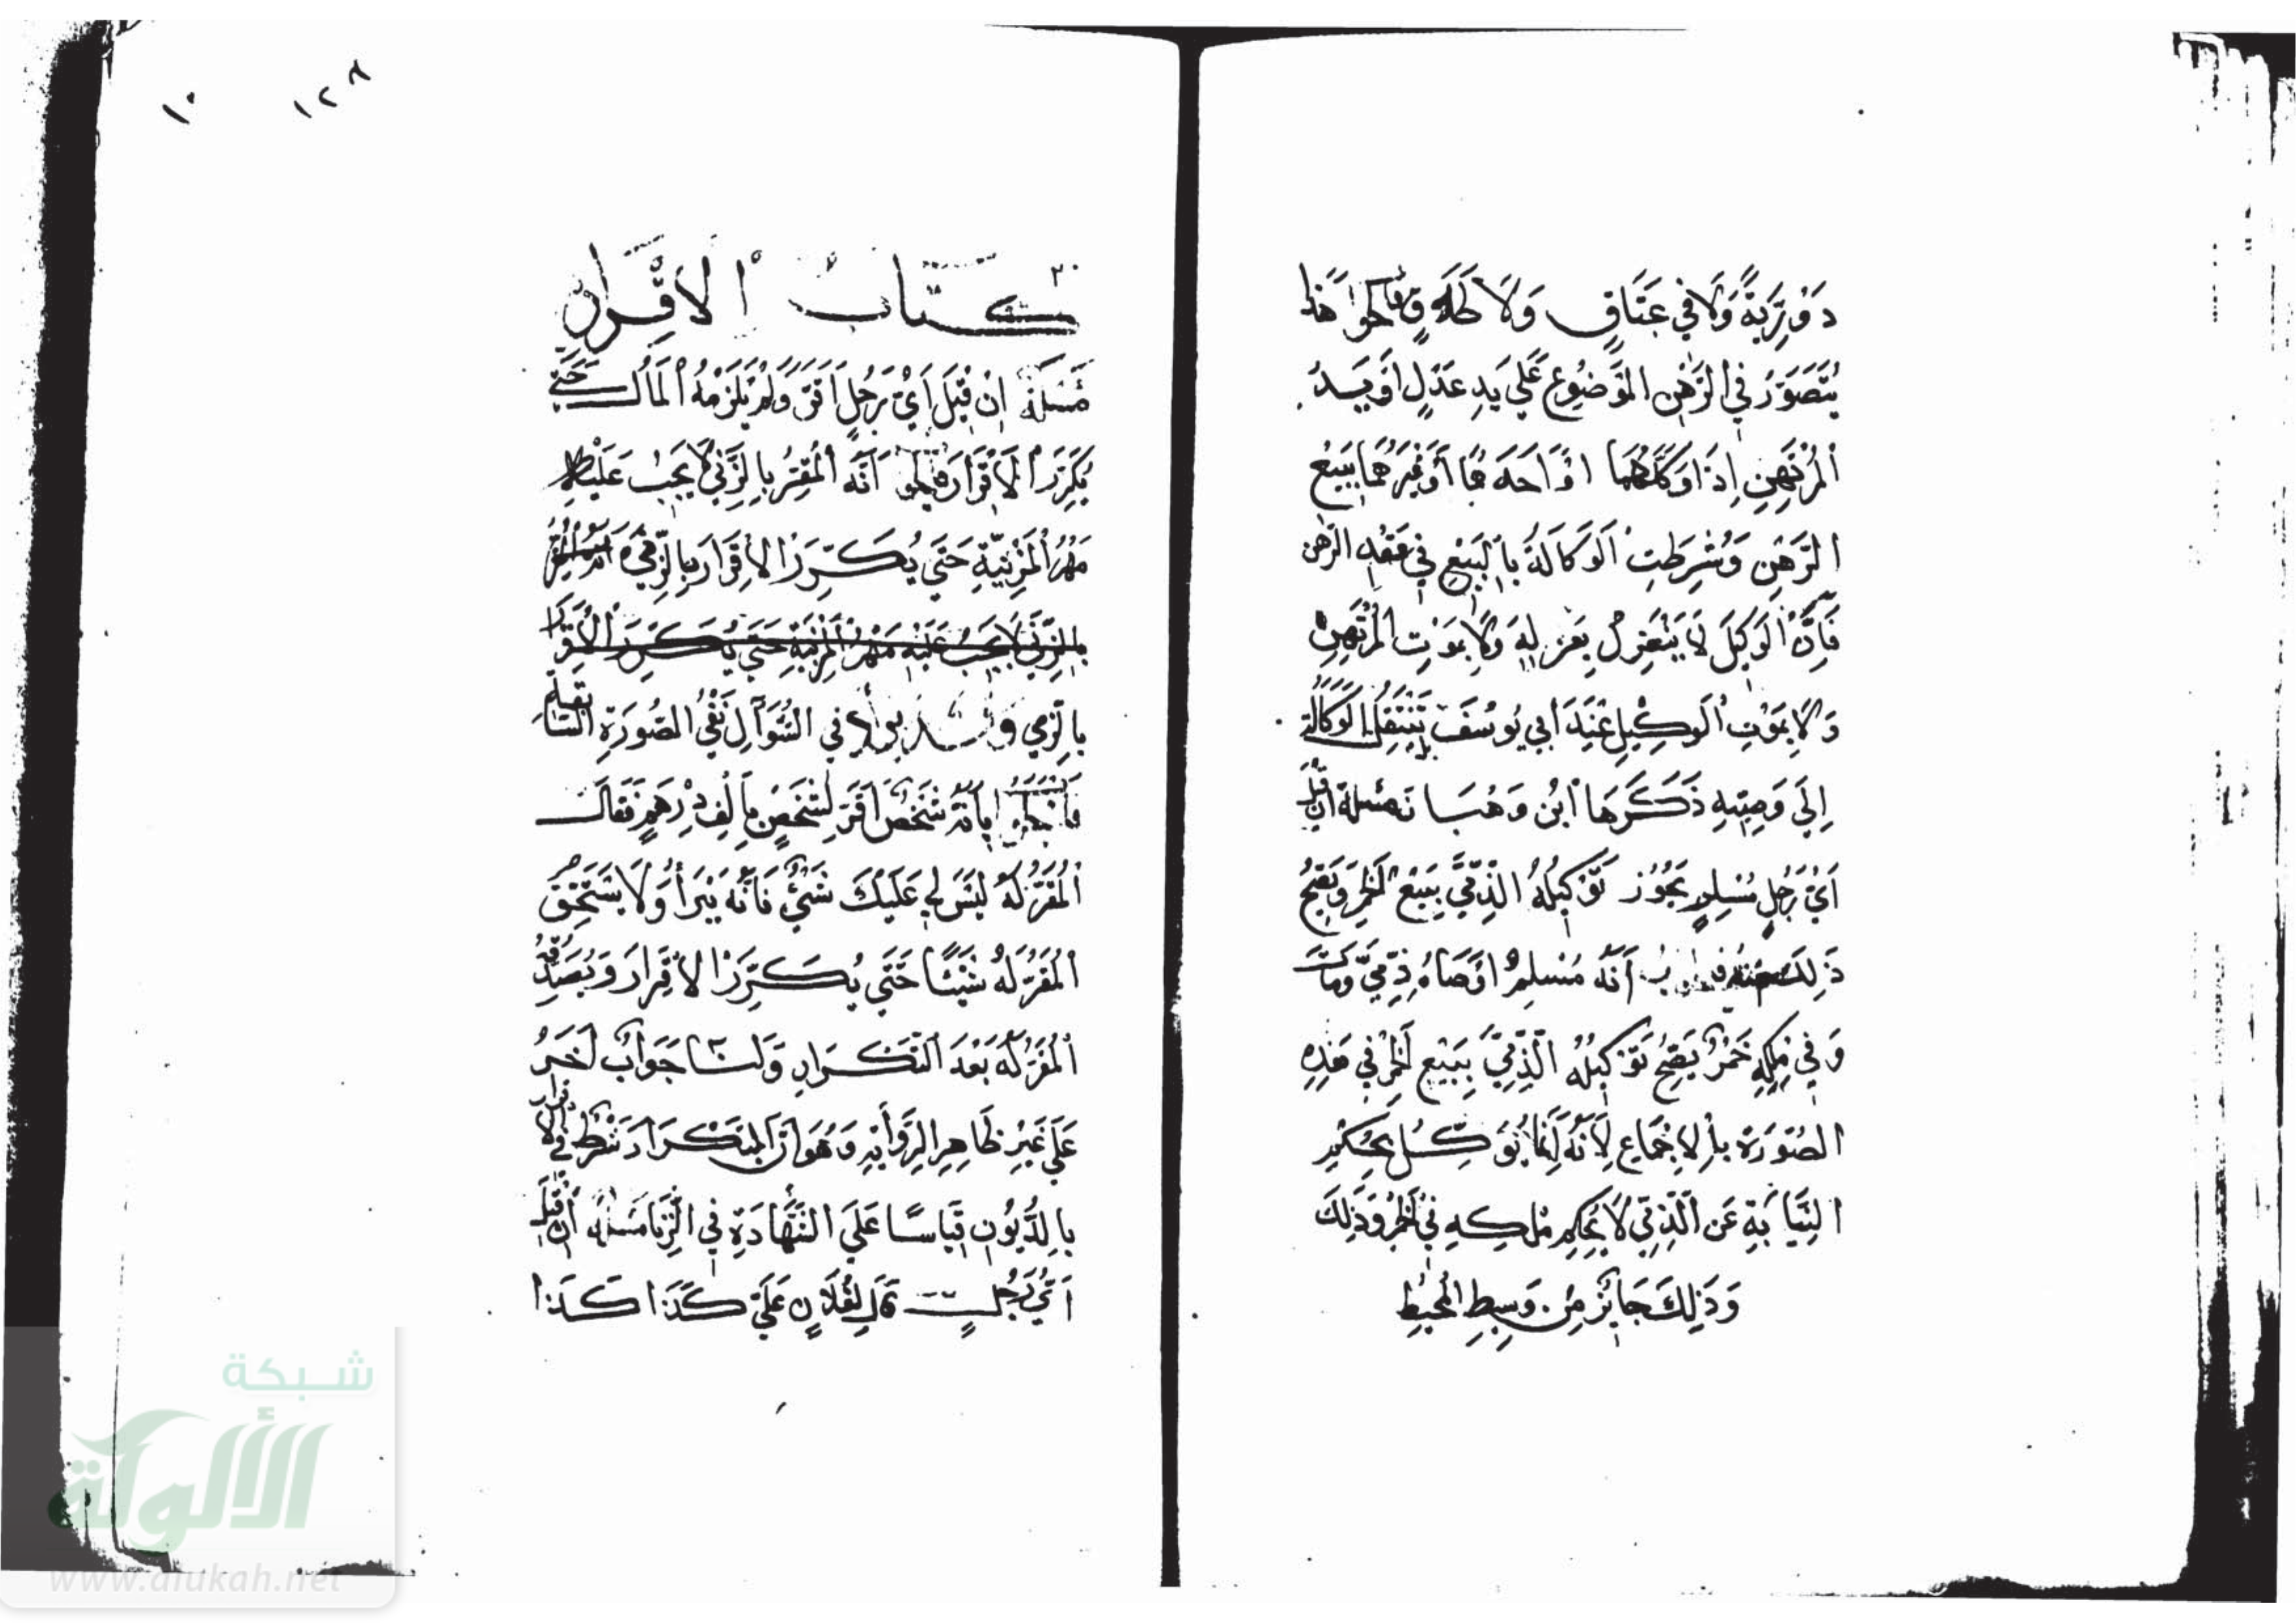 دورية ولا في عتاق ولا طلاق فالجواب هذا
يتصور في الرهن الموضوع على يد عدل او يد
المرتهن اذا وكلهما او احدهما او غيرهما ببيع
الرهن وشرطت الوكالة بالبيع في عقد الرهن
فان الوكيل لا ينعزل بعزله ولا بموت المرتهن
ولا بموت الوكيل عند ابي يوسف بل تنتقل الوكالة
الى وصيه ذكرها ابن وهبان مسئلة ان قيل
اي رجل مسلم يجوز توكيله الذمي ببيع الخمر ويصح
ذلك منه فالجواب أنه مسلم اوصاه ذمي ومات
وفي ملكه خمر يصح توكيله الذمي ببيع الخمر في هذه
الصورة بالاجماع لأنه انما يوكل بحكم
النيابة عن الذمي لا بحكم ملكه في الخمر وذلك
وذلك جائز من وسيط المحيط
١٢٨
١٠
كتاب الاقرار
مسئلة ان قيل اي رجل اقر ولم يلزمه المال حتى
يكرر الاقرار فالجواب انه المقر بالزنى لا يجب عليه
مهر المزنية حتى يكرر الاقرار بالزنى
بالزنى لا يجب عليه مهر المزنية حتى يكرر الاقرار
بالزمي في السؤال نفي الصورة السابقة
فالجواب بانه شخص اقر لشخص بالف درهم فقال
المقر له ليس لي عليك شئ فانه يبرأ ولا يستحق
المقر له شيئا حتى يكرر الاقرار ويصدقه
المقر له بعد التكرار ولنا جواب اخر
على غير ظاهر الرواية وهو ان التكرار شرط في الاقرار
بالديون قياسا على الشهادة في الزنا مسئلة ان قيل
اي رجل قال لفلان علي كذا كذا
شبكة
الألوكة
www.alukah.net